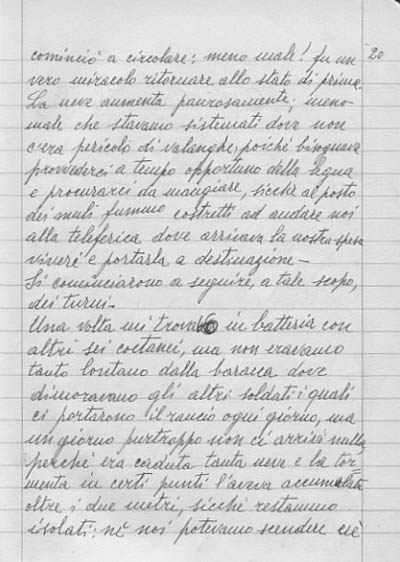 20
cominciò a circolare: meno male! fu un
vero miracolo ritornare allo stato di prima.
La neve aumenta paurosamente; meno
male che stavamo sistemati dove non
c'era pericolo di valanghe, poiché bisognava
provvederci a tempo opportuno della legna
e procurarci da mangiare, sicché al posto
dei muli fummo costretti ad andare noi
alla teleferica dove arrivava la nostra spesa
viveri e portarla a destinazione –
Si cominciarono a seguire, a tale scopo,
dei turni.
Una volta mi trovavo in batteria con
altri sei coetanei, ma non eravamo
tanto lontano dalla baracca dove
dimoravano gli altri soldati i quali
ci portarono il rancio ogni giorno, ma
un giorno purtroppo non ci arrivò nulla,
perché era caduta tanta neve e la tor=
menta in certi punti l'aveva accumulata
oltre i due metri, sicché restammo
isolati: né noi potevamo scendere né